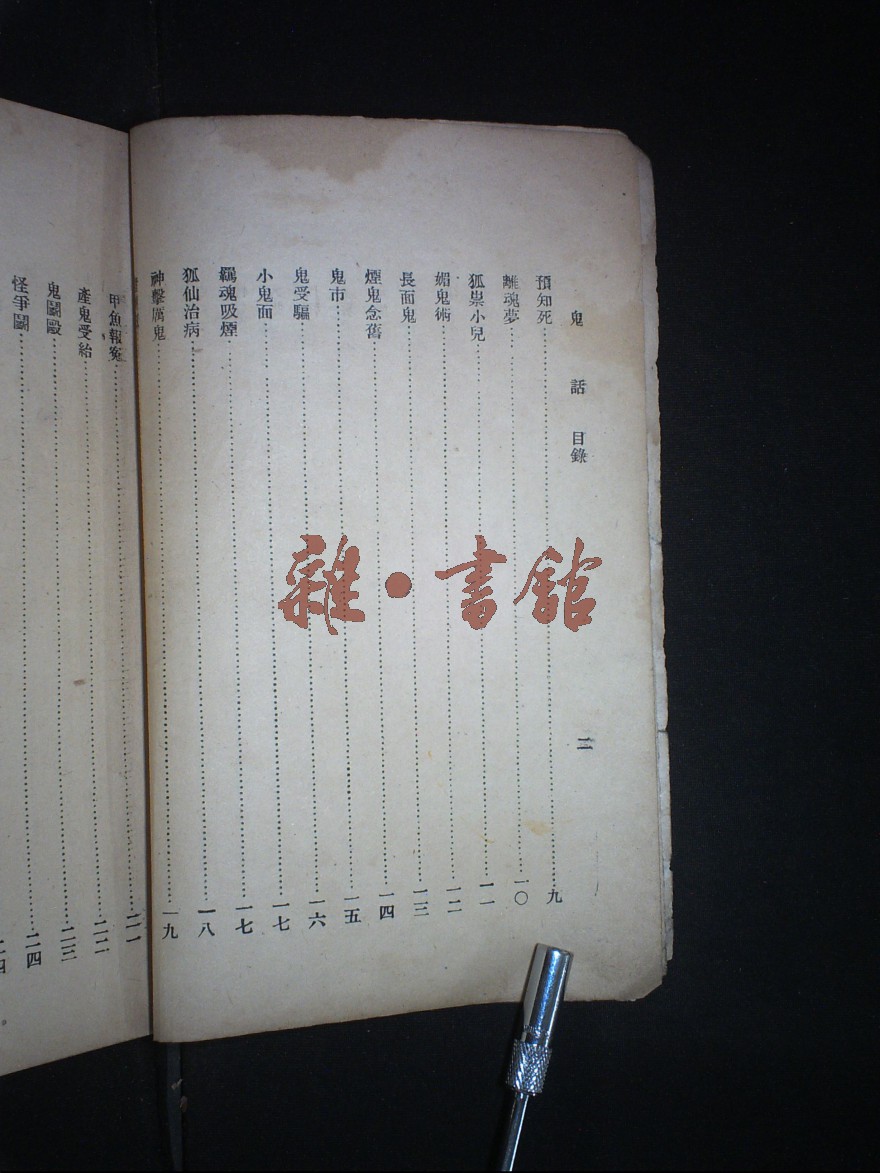 鬼話 目錄
二
預知死……九
離魂夢……一〇
狐祟小兒……一一
媚鬼術……一二
長面鬼……一三
煙鬼念舊……一四
鬼市……一五
鬼受騙……一六
小鬼面……一七
羈魂吸煙……一七
狐仙治病……一八
神擊厲鬼……一九
甲魚報冤……二一
產鬼受紿……二二
鬼鬪毆……二三
怪爭鬪……二四
二四
雜·書館